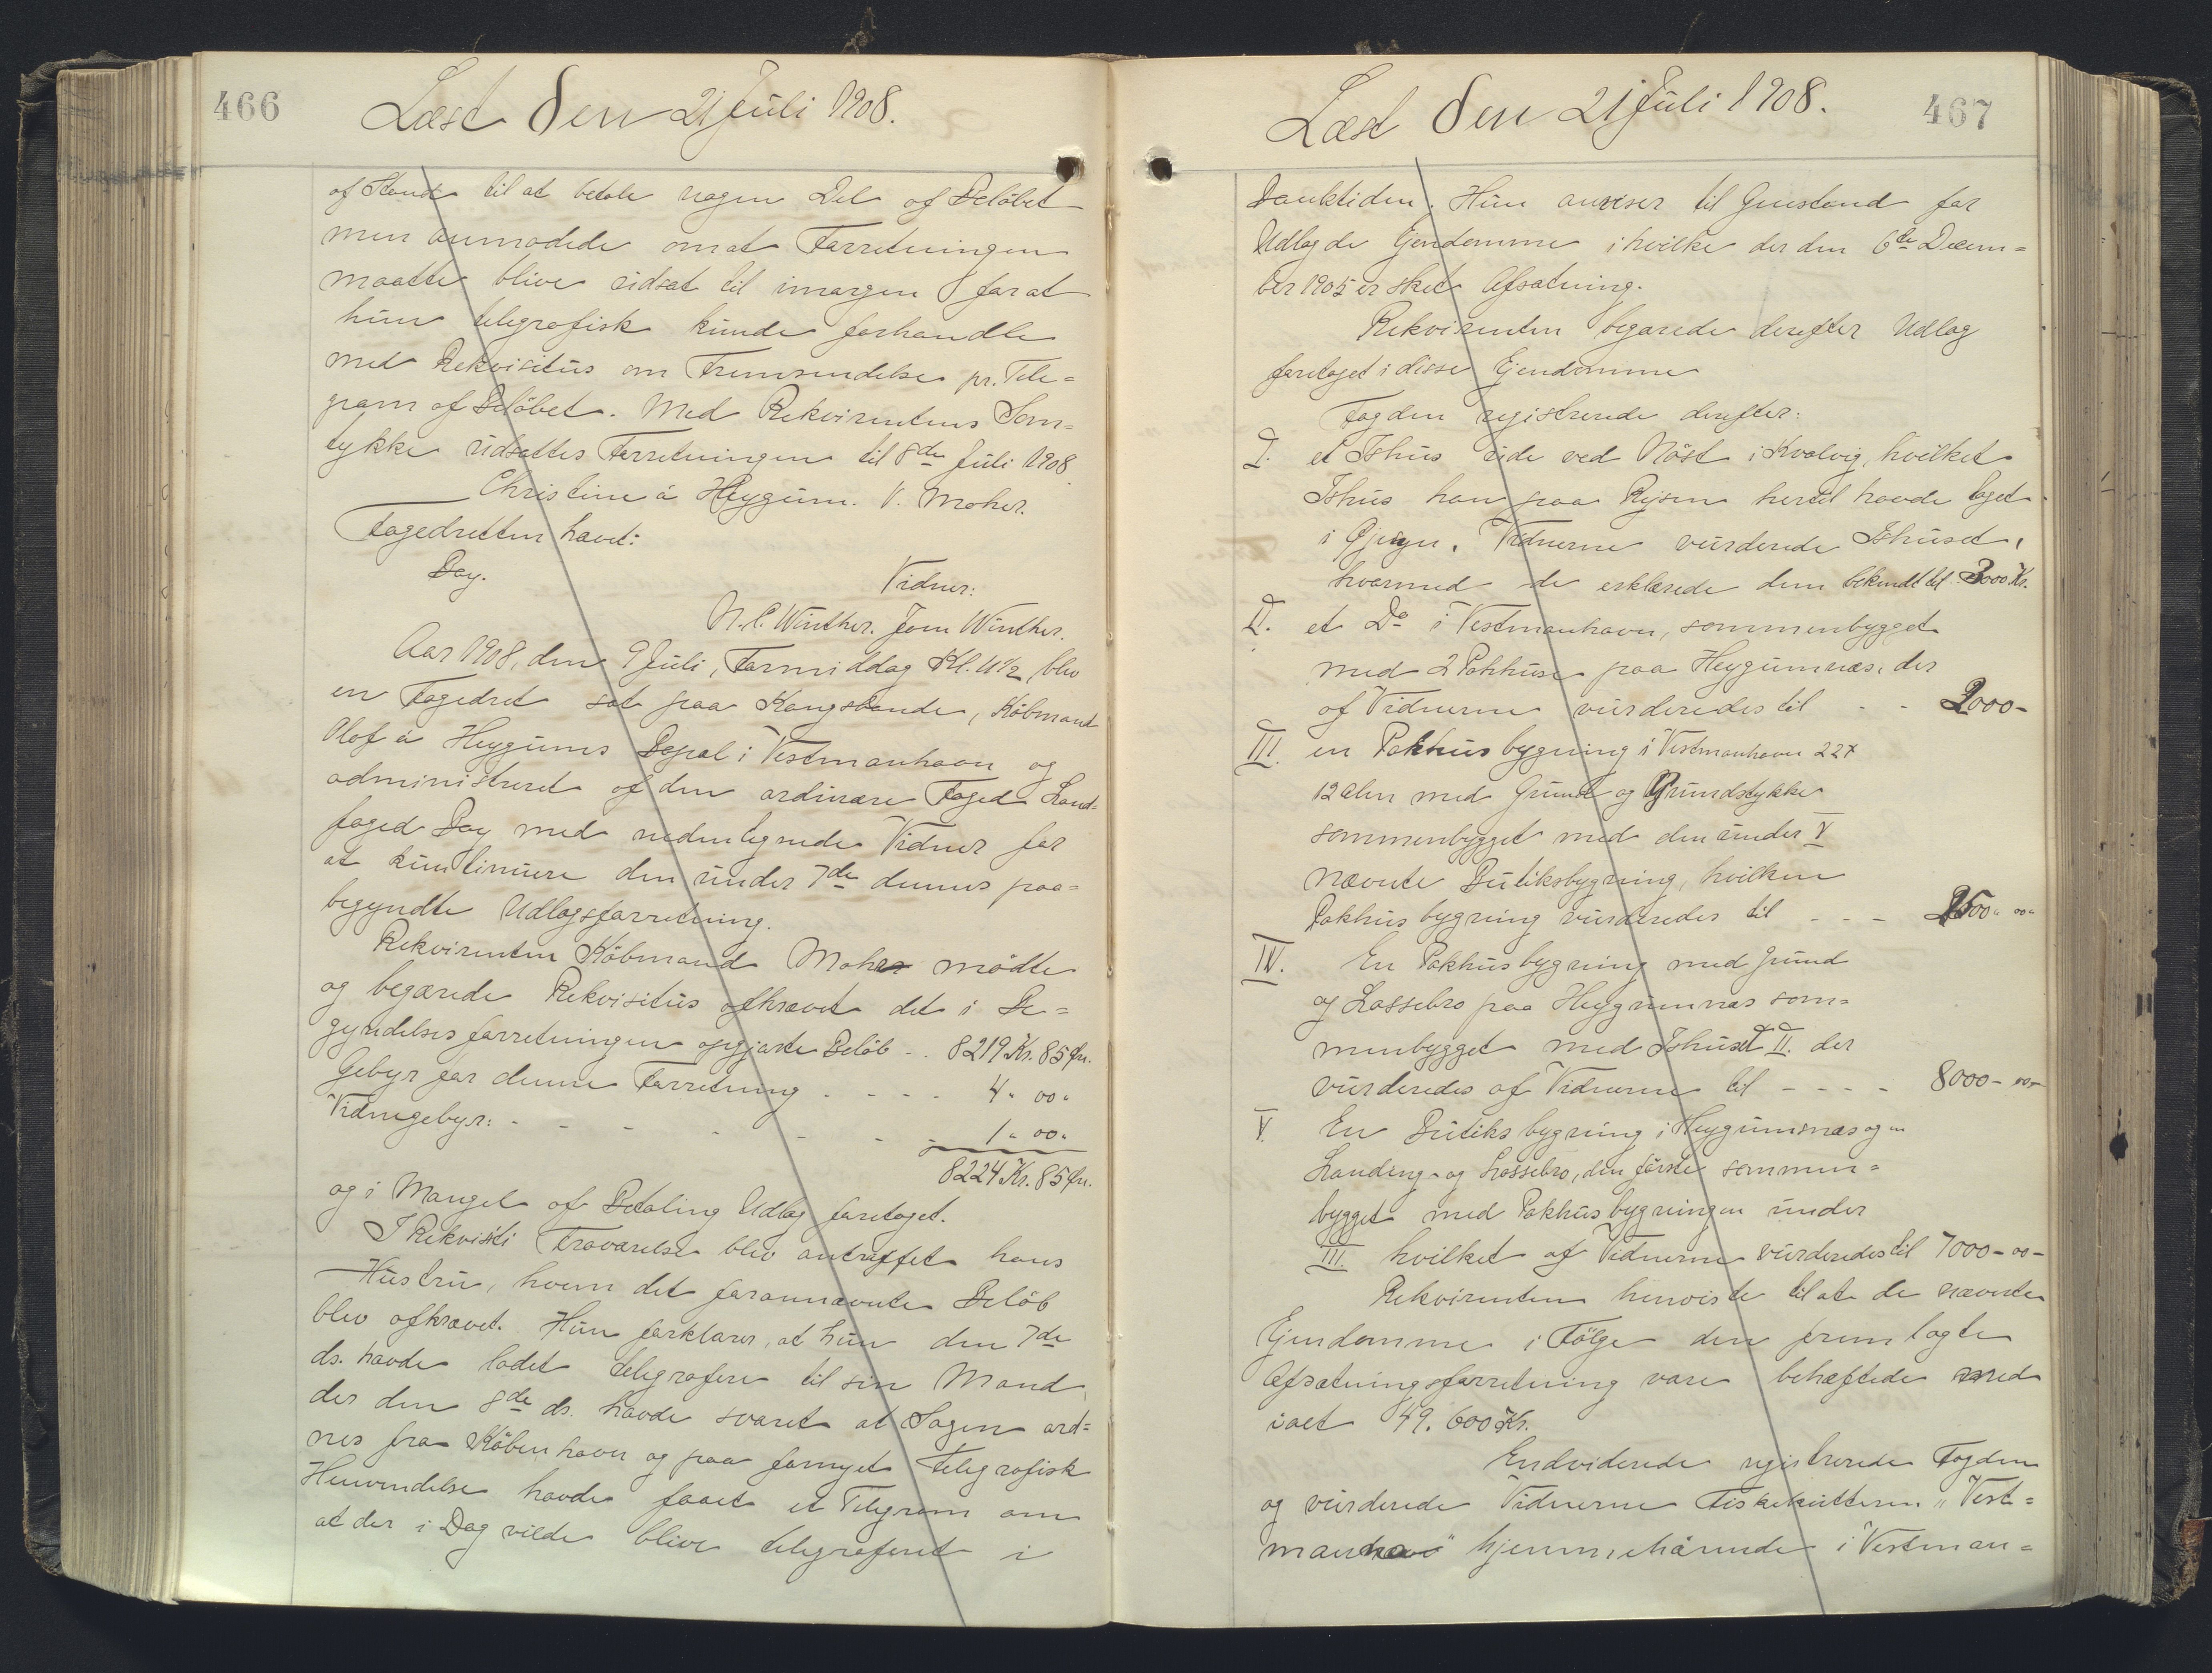 466
Læst den 21 Juli 1908.
af Stand til at betale nogen Del af Beløbet
men anmodede om at Forretningen
maatte blive udsat til imorgen for at
hun telegrafisk kunde forhandle
med Rekvisitus om Fremsendelse pr. Tele=
gram af Beløbet. Med Rekvirentens Sam=
tykke udsattes Forretningen til 8de Juli 1908.
Christine á Heygum. V. Moher.
Fogedretten hævet:
Bay.
Vidner:
N. C. Winther. Joen Winther.
Aar 1908, den 9 Juli, Formiddag Kl. 11½, blev
en Fogedret sat paa Kongsbonde, Købmand
Olof á Heygums Bopæl i Vestmanhavn og
administreret af den ordinære Foged Land=
foged Bay med nedentegnede Vidner for
at kuntinuere den under 7de dennes paa=
begyndte Udlægsforretning.
Rekvirenten Købmand Mohr mødte
og begærede Rekvisitus afkrævet det i Be=
gyndelsesforretningen opgjorte Beløb - . 8219 Kr. 85 Ør.
Gebyr for denne Forretning - - - - 4 " 00 "
Vidnegebyr: - - - - - - - 1 " 00 "
8224 Kr. 85 Ør.
og i Mangel af Betaling Udlæg foretaget.
I Rekvisiti Fraværelse blev antraffet hans
Hustru, hvem det forannævnte Beløb
blev afkrævet. Hun forklarer, at hun den 7de
ds. havde ladet telegrafere til sin Mand,
der den 8de ds. havde svaret at Sagen ord=
nes fra København og paa fornyet telegrafisk
Henvendelse havde faaet et Telegram om
at der i Dag vilde blive telegraferet i
Læst den 21 Juli 1908.
467
Banktiden. Hun anviser til Genstand for
Udlæg de Ejendomme i hvilke der den 6te Decem=
ber 1905 er sket Afsætning.
Rekvirenten begærede derefter Udlæg
foretaget i disse Ejendomme
Fogden registrerede derefter:
I. et Ishus ude ved Nöst i Kvalvig, hvilket
Ishus han paa Rejsen hertil havde taget
i Øjesyn. Vidnerne vurderede Ishuset,
hvormed de erklærede dem bekendt til 3000 Kr.
II. et Do i Vestmanhavn, sammenbygget
med 2 Pakhuse paa Heygumnæs, der
af Vidnerne vurderedes til - - 2000 -
III. en Pakhusbygning i Vestmanhavn 22 x
12 Alen med Grund og Grundstykke
sammenbygget med den under V
nævnte Butiksbygning, hvilken
Pakhusbygning vurderedes til - - - 2500 " 00 "
IV. En Pakhusbygning med Grund
og Lossebro paa Heygumnæs sam=
menbygget med Ishuset II. der
vurderedes af Vidnerne til - - - - 8000 - 00 -
V. En Butiksbygning i Heygumsnæs og en
Landing- og Lossebro, den første sammen=
bygget med Pakhusbygningen under
III. hvilket af Vidnerne vurderedes til 7000 - 00 -
Rekvirenten henviste til at de nævnte
Ejendomme i Følge den fremlagte
Afsætningsforretning vare behæftede med
ialt 49.600 Kr.
Endviderede registrerede Fogden
og vurderede Vidnerne Fiskekutteren "Vest=
manhavn" hjemmehørende i Vestman=